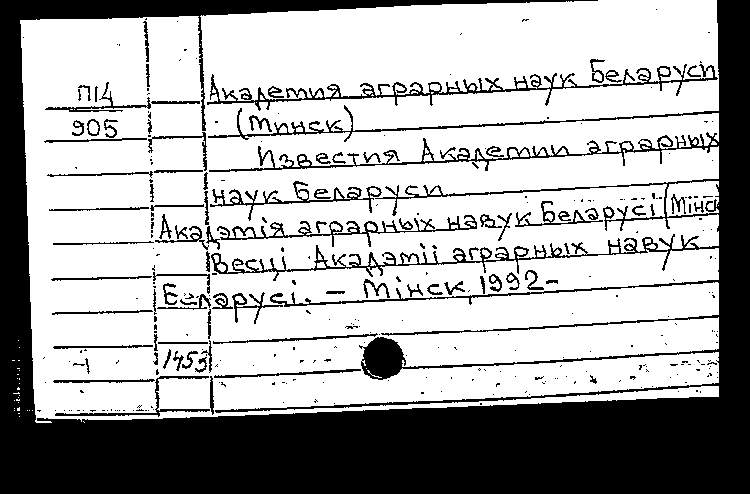 П14
905
Академия аграрных наук Беларуси
(Минск)
Известия Академии аграрных
наук Беларуси
Акадэмія аграрных навук Беларусі (Мінск
Весці Акадэміі аграрных навук
Беларусі. – Мінск, 1992-
1453